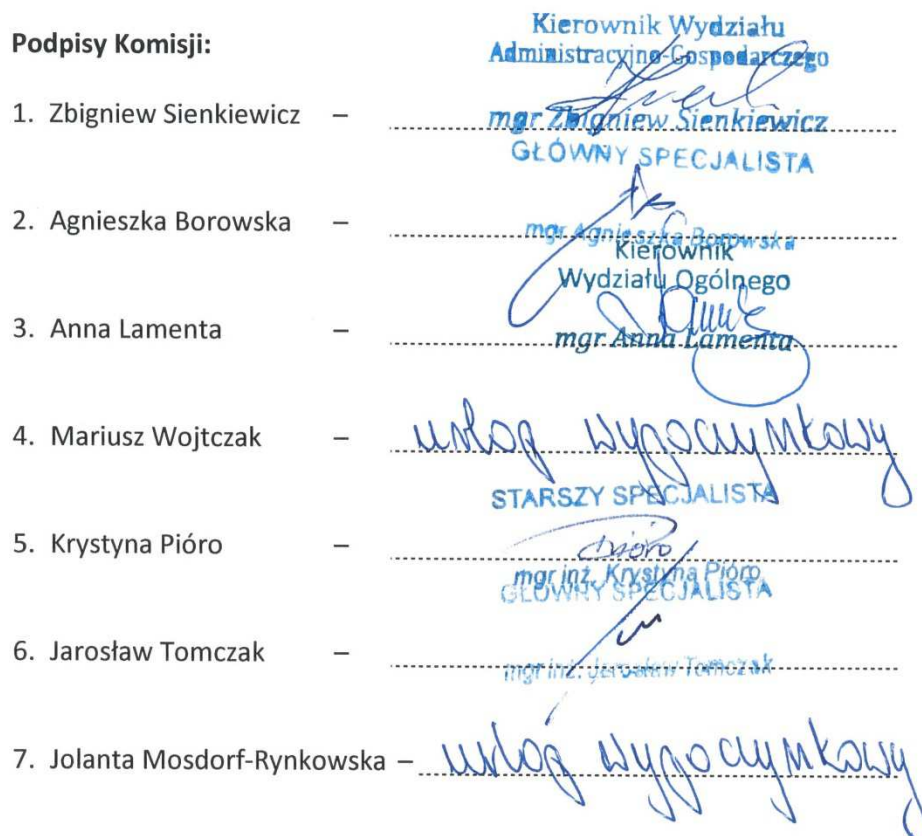 Podpisy Komisji:
Kierownik Wydziału
Administracyjno-Gospodarczego
1. Zbigniew Sienkiewicz –
mgr Zbigniew Sienkiewicz
GŁÓWNY SPECJALISTA
2. Agnieszka Borowska –
mgr Agnieszka Borowska
Kierownik
Wydziału Ogólnego
3. Anna Lamenta –
mgr Anna Lamenta
4. Mariusz Wojtczak – urlop wypoczynkowy
STARSZY SPECJALISTA
5. Krystyna Pióro – Pióro
mgr inż. Krystyna Pióro
GŁÓWNY SPECJALISTA
6. Jarosław Tomczak –
mgr inż. Jarosław Tomczak
7. Jolanta Mosdorf-Rynkowska – urlop wypoczynkowy